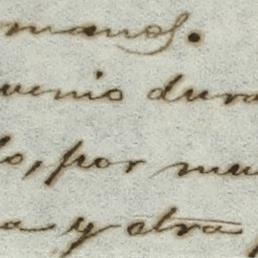 manos.
venio dura
lo, por mu
a y otra